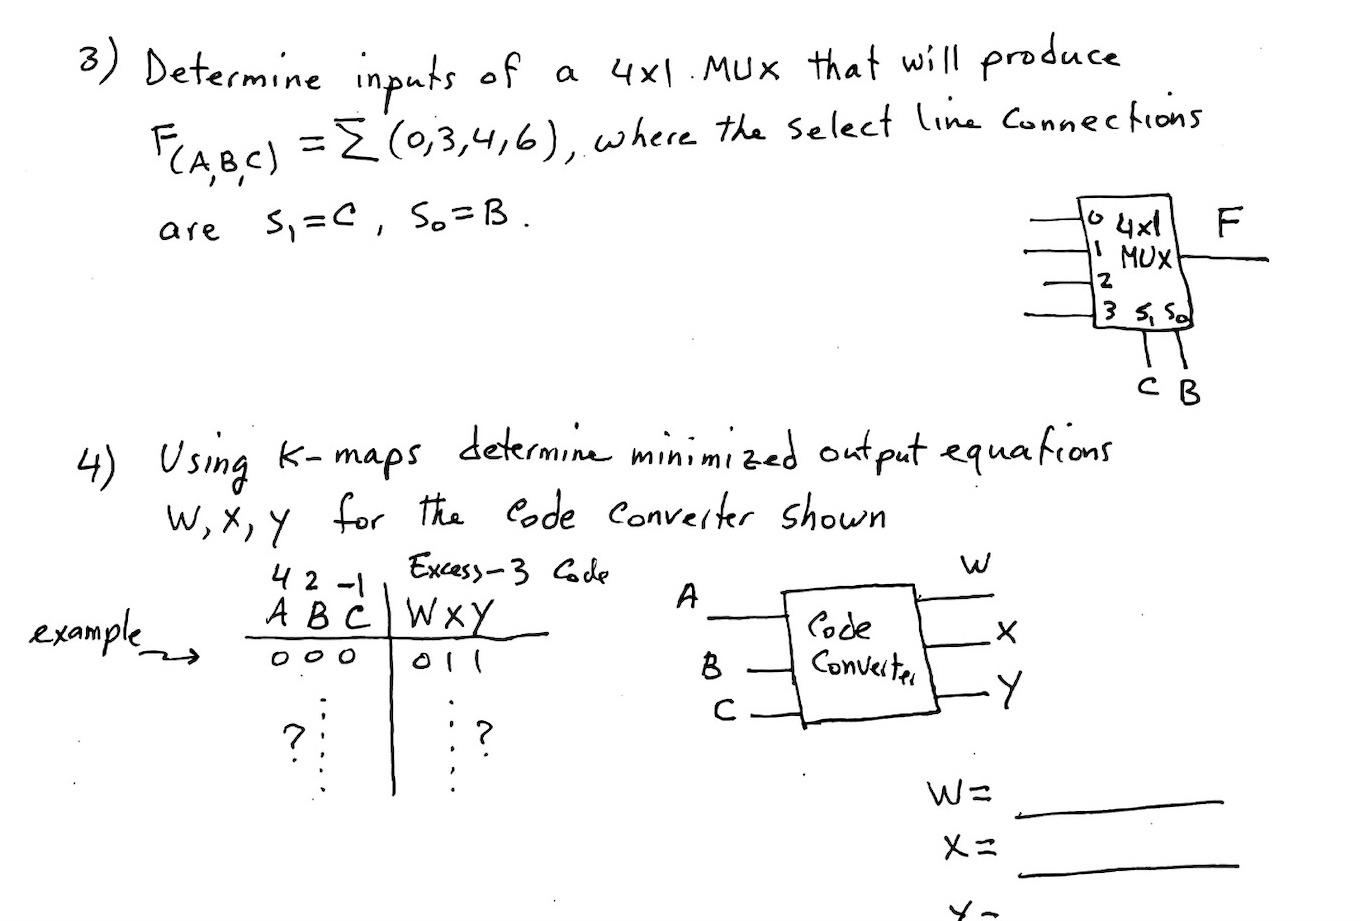 3) Determine inputs of a 4x1 MUX that will produce
F(A,B,C) = Σ (0,3,4,6), where the select line connections
are S₁=C, S₀=B.
0 4x1 F
1 MUX
2
3 S₁ S₀
C B
4) Using K-maps determine minimized output equations
W, X, Y for the Code Converter shown
4 2 -1 Excess-3 Code
A B C W X Y
example 0 0 0 0 1 1
? ?
A W
B Code Converter X
C Y
W =
X =